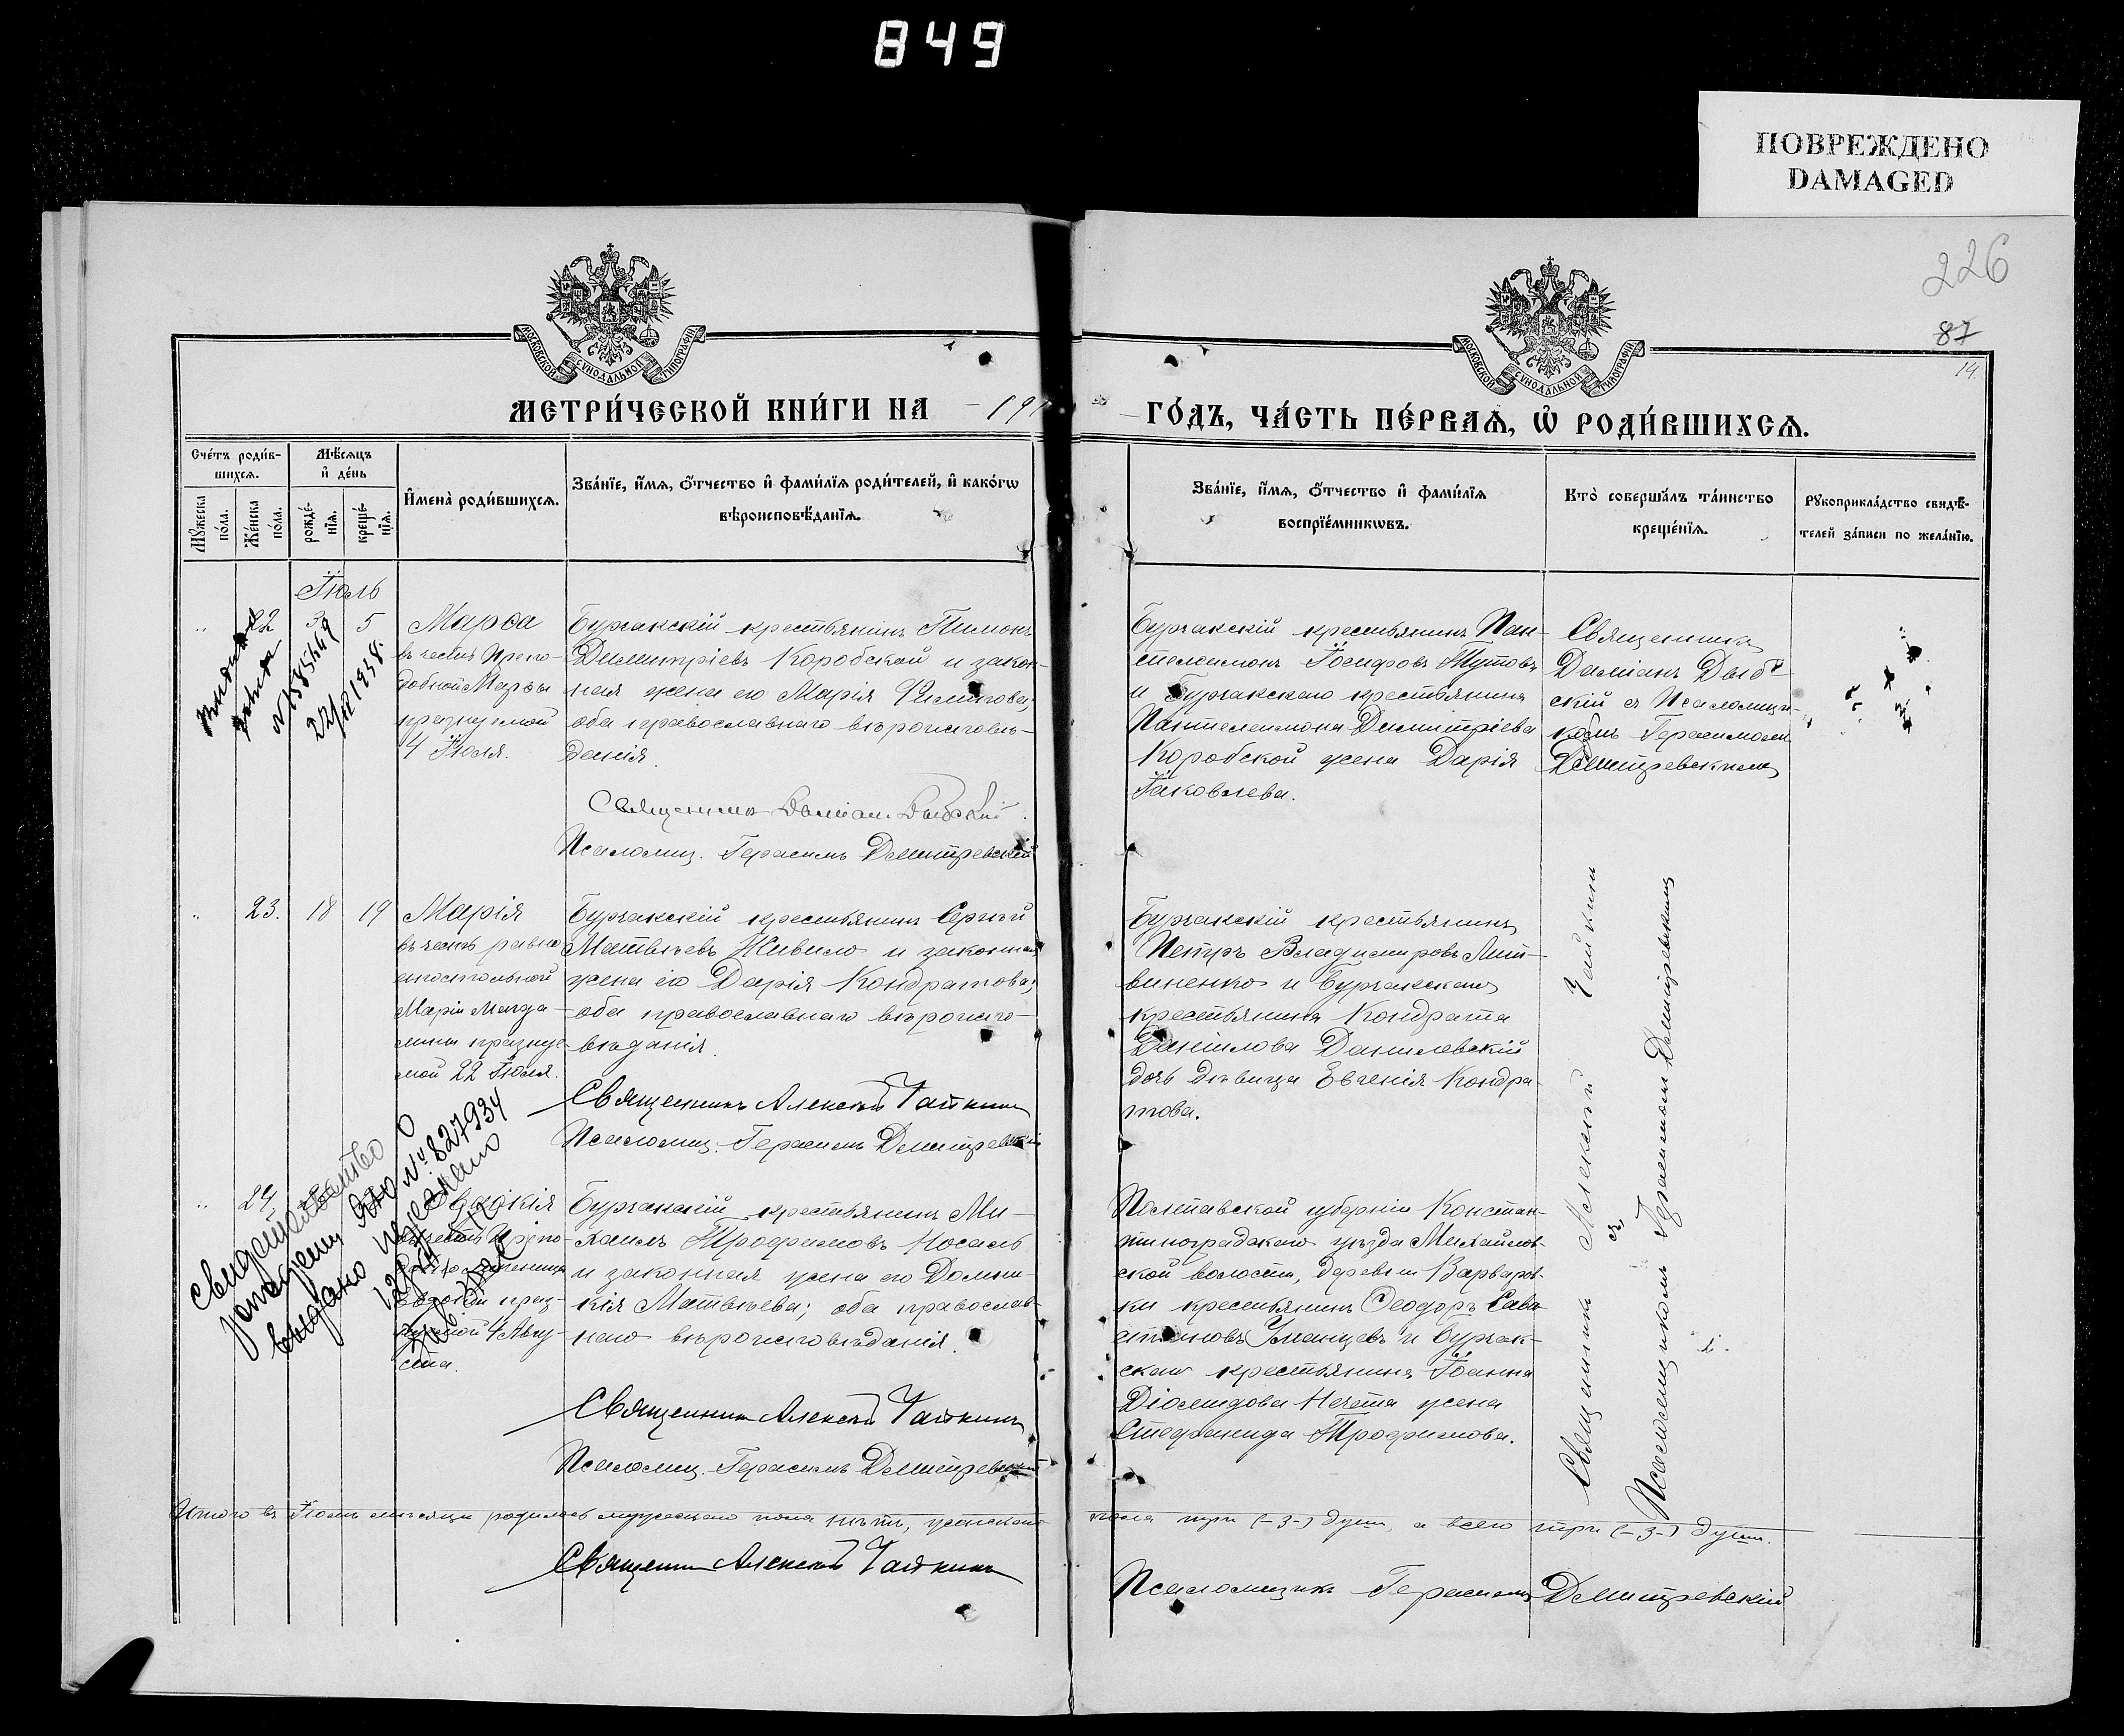 849
ПОВРЕЖДЕНО
DAMAGED
226
87
14
МОСКОВСКОЙ СѴНОДАЛЬНОЙ ТИПОГРАФІИ
МОСКОВСКОЙ СѴНОДАЛЬНОЙ ТИПОГРАФІИ
МЕТРИ́ЧЕСКОЙ КНИ́ГИ НА 191
ГО́ДЪ, ЧА́СТЬ ПЕ́РВАѦ, Ѡ҆ РОДИ́ВШИХСѦ.
Сче́тъ роди́в-
шихсѧ.
Мѣ́сѧцъ
и҆ де́нь
Мꙋ́жеска
по́ла.
Же́нска
по́ла.
рожде́-
нїѧ.
креще́-
нїѧ.
И҆мена̀ роди́вшихсѧ.
Зва́нїе, и҆́мѧ, о҆́тчество и҆ фами́лїѧ роди́телей, и҆ како́гѡ
вѣроисповѣ́данїѧ.
Зва́нїе, и҆́мѧ, о҆́тчество и҆ фами́лїѧ
воспрїе́мникѡвъ.
Кто̀ соверша́лъ та́инство
креще́нїѧ.
Рꙋкоприкла́дство свидѣ́-
телей за́писи по жела́нїю.
Іюль
22 3 5
Марѳа
въ честь Препо-
добной Марѳы
празнуемой
4 Іюля.
22/II 1958.
Бурчакскій крестьянинъ Пимонъ
Димитріевъ Коробской и закон-
ная жена его Марія Филипова;
оба православнаго вѣроисповѣ-
данія.
Священникъ Даміан Дыбскій.
Псаломщ. Герасимъ Дмитревскій
Бурчакскій крестьянинъ Пан-
телеимонъ Іосифовъ Тутовъ
и Бурчакскаго крестьянина
Пантелеимона Димитріева
Коробской жена Дарія
Іаковлева.
Священникъ
Даміанъ Дыб-
скій съ Псаломщи-
комъ Герасимомъ
Дмитревскимъ
23. 18 19
Марія
въ честь равно
апостольной
Маріи Магда-
лины празнуе-
мой 22 Іюля.
Бурчакскій крестьянинъ Сергѣй
Матвѣевъ Живило и законная
жена его Дарія Кондратова;
оба православнаго вѣроиспо-
вѣданія.
Священникъ Алексѣй Чайкинъ
Псаломщ. Герасимъ Дмитревскій
Бурчакскій крестьянинъ
Петръ Владимировъ Лит-
виненко и Бурчакскаго
крестьянина Кондрата
Даніилова Данилевскій
дочь дѣвица Евгенія Кондра-
това.
Священникъ Алексѣй Чайкинъ
съ
Псаломщикомъ Герасимомъ Дмитревскимъ
Свидетельство о
рождении
№ 827934
выдано
24
Евдокія
въ честь Препо-
Евдокіи праз-
нуемой 4 Авгу-
ста.
Бурчакскій крестьянинъ Ми-
хаилъ Трофимовъ Носаль
и законная жена его Домни-
кія Матвѣева; оба православ-
наго вѣроисповѣданія.
Священникъ Алексѣй Чайкинъ
Псаломщ. Герасимъ Дмитревскій
Полтавской губерніи Констан-
тиноградскаго уѣзда Михайлов-
ской волости, деревни Варваров-
ки крестьянинъ Ѳеодоръ Сева
стіановъ Уманцевъ и Бурчак-
скаго крестьянина Іоанна
Діомидова Нечета жена
Стефанида Трофимова.
Итого въ Іюль мѣсяцѣ родилось мужескаго пола нѣтъ, женскаго
пола три (-3-) душ, а всего три (-3-) душ.
Священникъ Алексѣй Чайкинъ
Псаломщикъ Герасимъ Дмитревскій